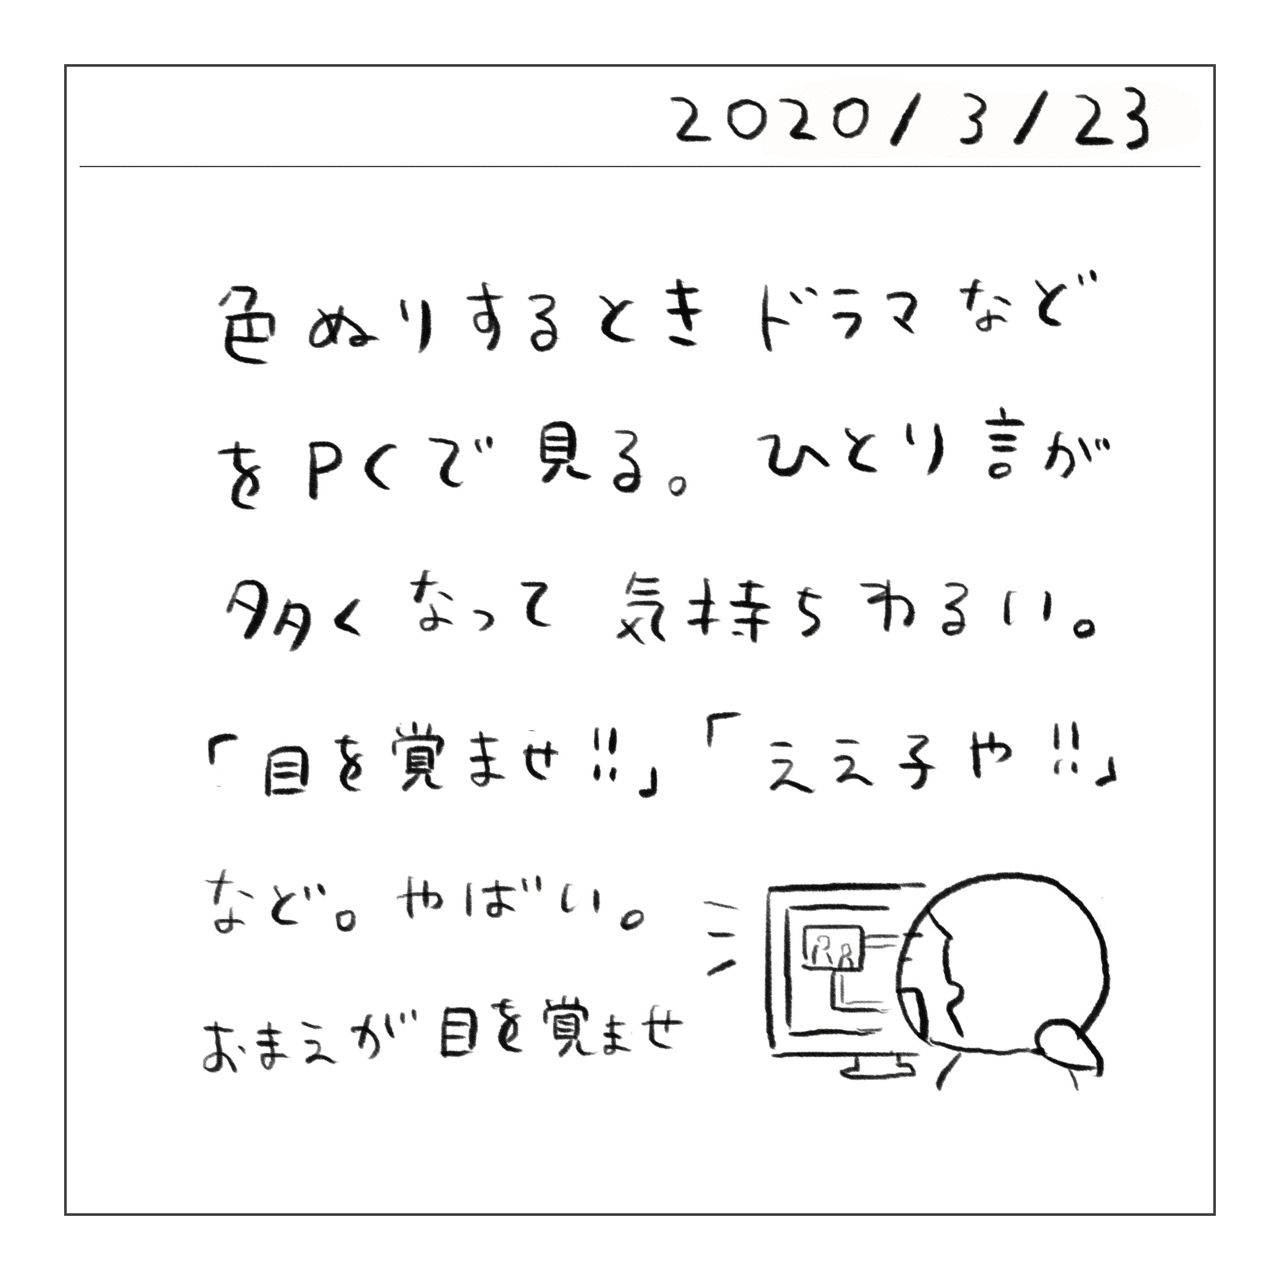 2020/3/23
色ぬりするときドラマなど
をPCで見る。ひとり言が
多くなって気持ちわるい。
「目を覚ませ!!」「ええ子や!!」
など。やばい。
おまえが目を覚ませ